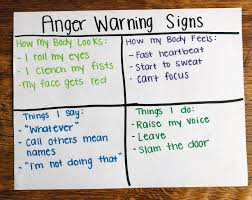 Anger Warning Signs
How my Body Looks:
- I roll my eyes
- I clench my fists
- my face gets red
How my Body Feels:
- Fast heartbeat
- Start to sweat
- Can't focus
Things I say:
- "Whatever"
- Call others mean
names
- "I'm not doing that"
Things I do:
- Raise my voice
- Leave
- Slam the door